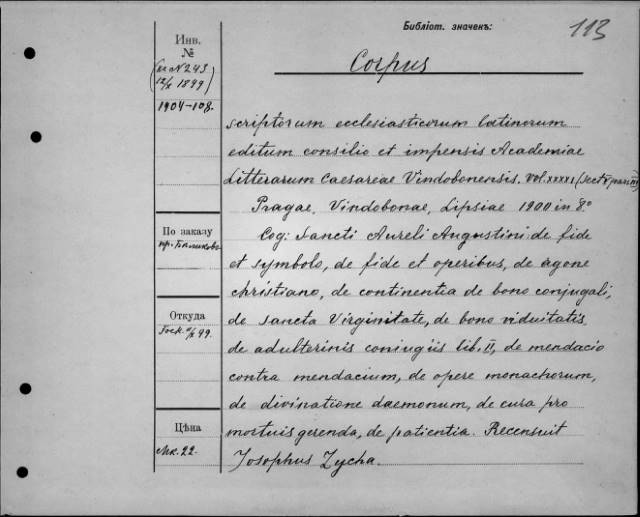 Библіот. значекъ:
113
Инв.
№
(см N 243
12/X 1899)
1904-108.
Corpus
scriptorum ecclesiasticorum latinorum
editum consilio et impensis Academiae
Litterarum Caesareae Vindobonensis. Vol. XXXXI (Sect V pars III)
Pragae, Vindobonae, Lipsiae 1900 in 8.º
По заказу
пр.
Cog: Sancti Aureli Augustini: de fide
et symbolo, de fide et operibus, de agone
christiano, de continentia de bono conjugali,
Откуда
99.
de sancta Virginitate, de bono viduitatis
de adulterinis coniugiis lib. II, de mendacio
contra mendacium, de opere monachorum,
de divinatione daemonum, de cura pro
Цѣна
Мк. 22.
mortuis gerenda, de patientia. Recensuit
Josophus Zycha.